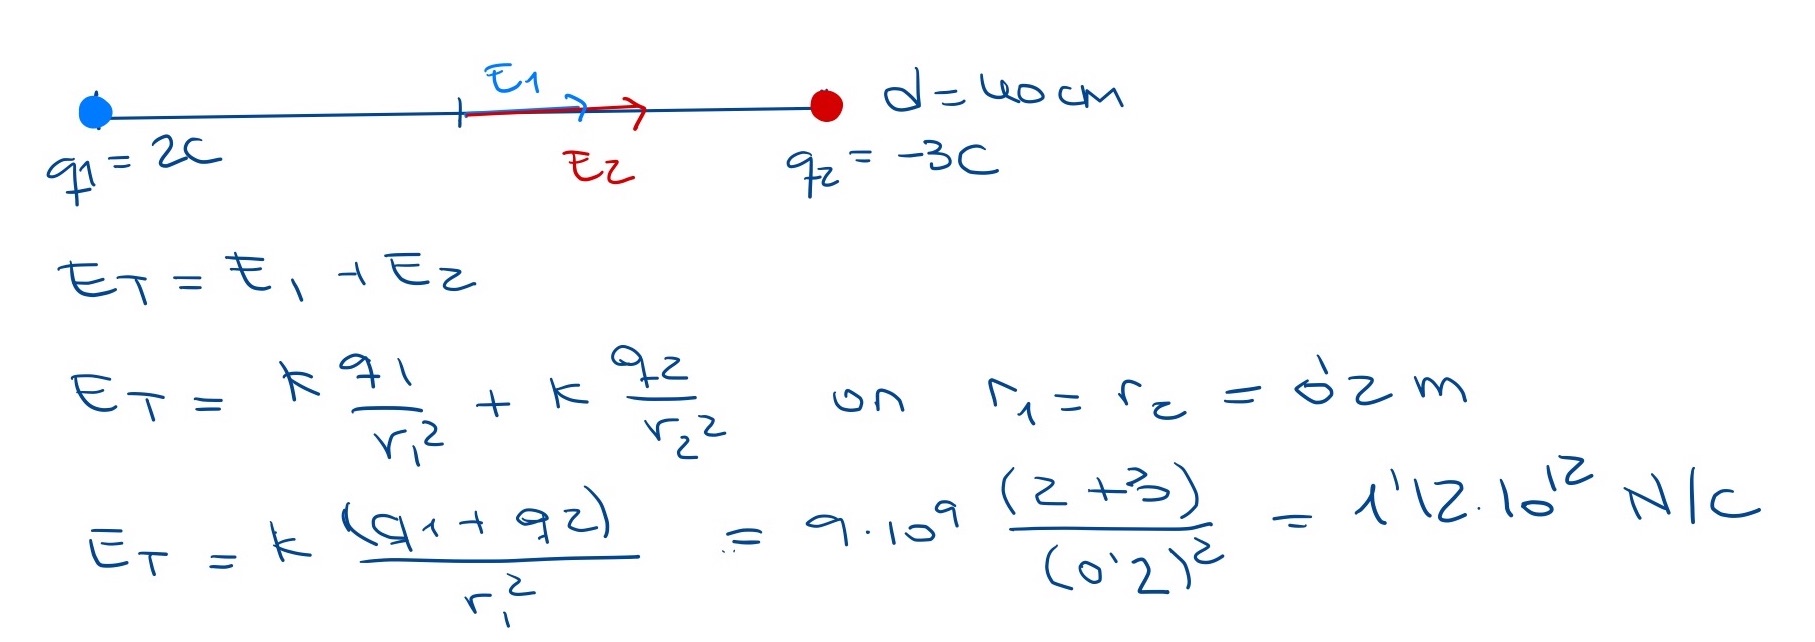 E1
d = 40 cm
q1 = 2C
E2
q2 = -3C
ET = E1 + E2
ET = k q1/r1² + k q2/r2² on r1 = r2 = 0'2 m
ET = k (q1 + q2)/r1² = 9·10⁹ (2+3)/(0'2)² = 1'12·10¹² N/C